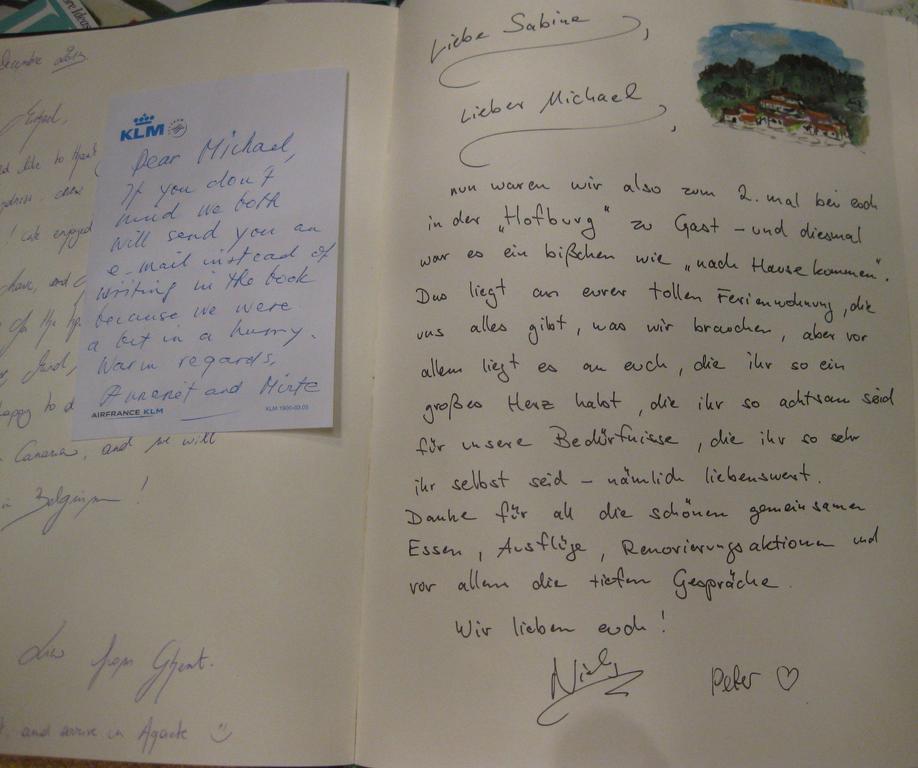 like to
enjoyed
have, and
of the
happy to
Canaria, and we will
in Belgium!
from Ghent.
and arrive in Agaete
KLM
Dear Michael,
If you don't
mind we both
will send you an
e-mail instead of
writing in the book
because we were
a bit in a hurry.
Warm regards,
and Mirte
AIRFRANCE KLM
Liebe Sabine,
Lieber Michael,
nun waren wir also zum 2. mal bei euch
in der „Hofburg" zu Gast – und diesmal
war es ein bißchen wie „nach Hause kommen".
Das liegt an eurer tollen Ferienwohnung, die
uns alles gibt, was wir brauchen, aber vor
allem liegt es an euch, die ihr so ein
großes Herz habt, die ihr so achtsam seid
für unsere Bedürfnisse, die ihr so sehr
ihr selbst seid – nämlich liebenswert.
Danke für all die schönen gemeinsamen
Essen, Ausflüge, Renovierungsaktionen und
vor allem die tiefen Gespräche.
Wir lieben euch!
Peter ♡